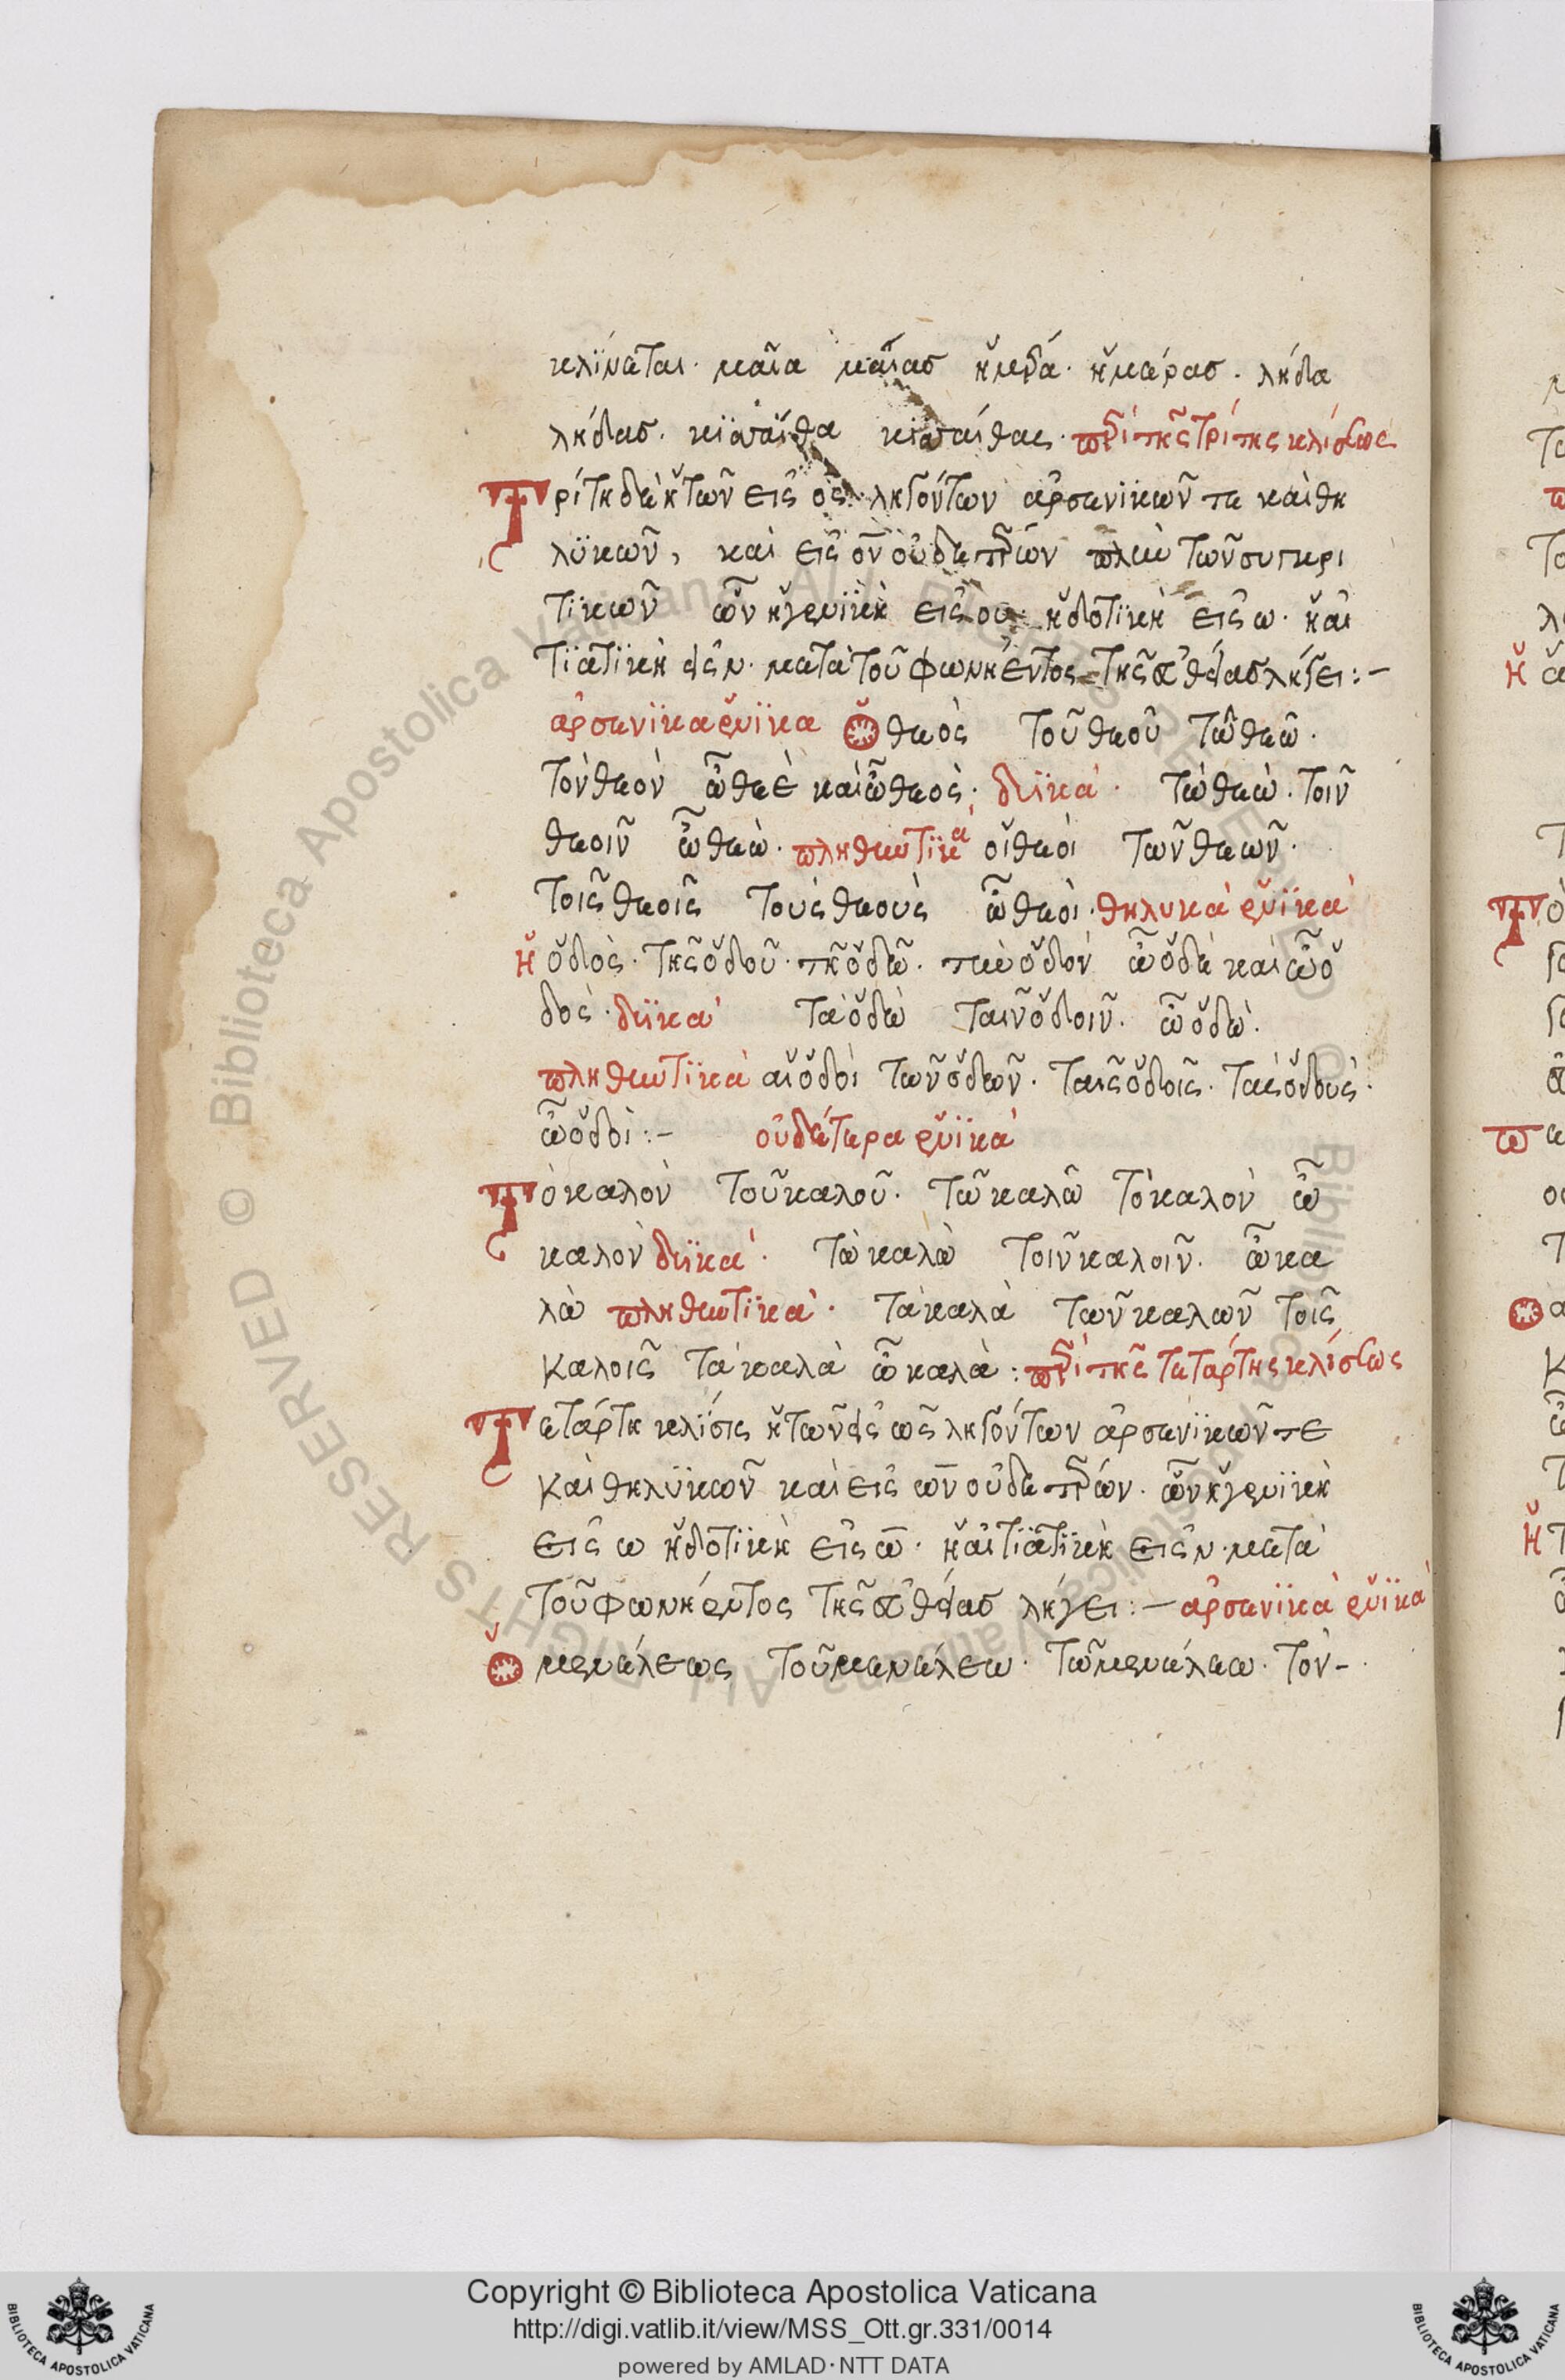 κλίνεται. μαῖα μαίας ἡμέρα. ἡμέρας. λήδα
λήδας. κισσαίθα κισσαίθας. περὶ τῆς τρίτης κλίσεως
Τρίτη δὲ ἡ τῶν εἰς ος ληγόντων ἀρσενικῶν τε καὶ θη
λυκῶν, καὶ εἰς ον οὐδετέρων πλὴν τῶν συγκρι
τικῶν ὧν ἡ γενικὴ εἰς ου. ἡ δοτικὴ εἰς ω. ἡ αἰ
τιατικὴ εἰς ν. μετὰ τοῦ φωνήεντος τῆς εὐθείας λήγει:-
ἀρσενικὰ ἑνικὰ Ὁ θεὸς τοῦ θεοῦ τῷ θεῷ.
τὸν θεὸν ὦ θεὲ καὶ ὦ θεὸς. δυϊκὰ. τὼ θεὼ. τοῖν
θεοῖν ὦ θεὼ. πληθυντικὰ οἱ θεοὶ τῶν θεῶν.
τοῖς θεοῖς τοὺς θεοὺς ὦ θεοὶ. θηλυκὰ ἑνικὰ
ἡ ὁδὸς. τῆς ὁδοῦ. τῇ ὁδῷ. τὴν ὁδὸν ὦ ὁδὲ καὶ ὦ ὁ
δὸς. δυϊκὰ τὰ ὁδὼ ταῖν ὁδοῖν. ὦ ὁδὼ.
πληθυντικὰ αἱ ὁδοὶ τῶν ὁδῶν. ταῖς ὁδοῖς. τὰς ὁδοὺς.
ὦ ὁδοὶ:- οὐδέτερα ἑνικὰ
Τὸ καλὸν τοῦ καλοῦ. τῷ καλῷ τὸ καλὸν ὦ
καλὸν δυϊκὰ. τὼ καλὼ τοῖν καλοῖν. ὦ κα
λὼ πληθυντικὰ. τὰ καλὰ τῶν καλῶν τοῖς
καλοῖς τὰ καλὰ ὦ καλὰ: περὶ τῆς τετάρτης κλίσεως
Τετάρτη κλίσις ἡ τῶν εἰς ως ληγόντων ἀρσενικῶν τε
καὶ θηλυκῶν καὶ εἰς ων οὐδετέρων. ὧν ἡ γενικὴ
εἰς ω ἡ δοτικὴ εἰς ω. ἡ αἰτιατικὴ εἰς ν. μετὰ
τοῦ φωνήεντος τῆς εὐθείας λήγει:- ἀρσενικὰ ἑνικὰ
Ὁ μενέλεως τοῦ μενέλεω. τῷ μενέλεῳ. τὸν-
Copyright © Biblioteca Apostolica Vaticana
http://digi.vatlib.it/view/MSS_Ott.gr.331/0014
powered by AMLAD·NTT DATA